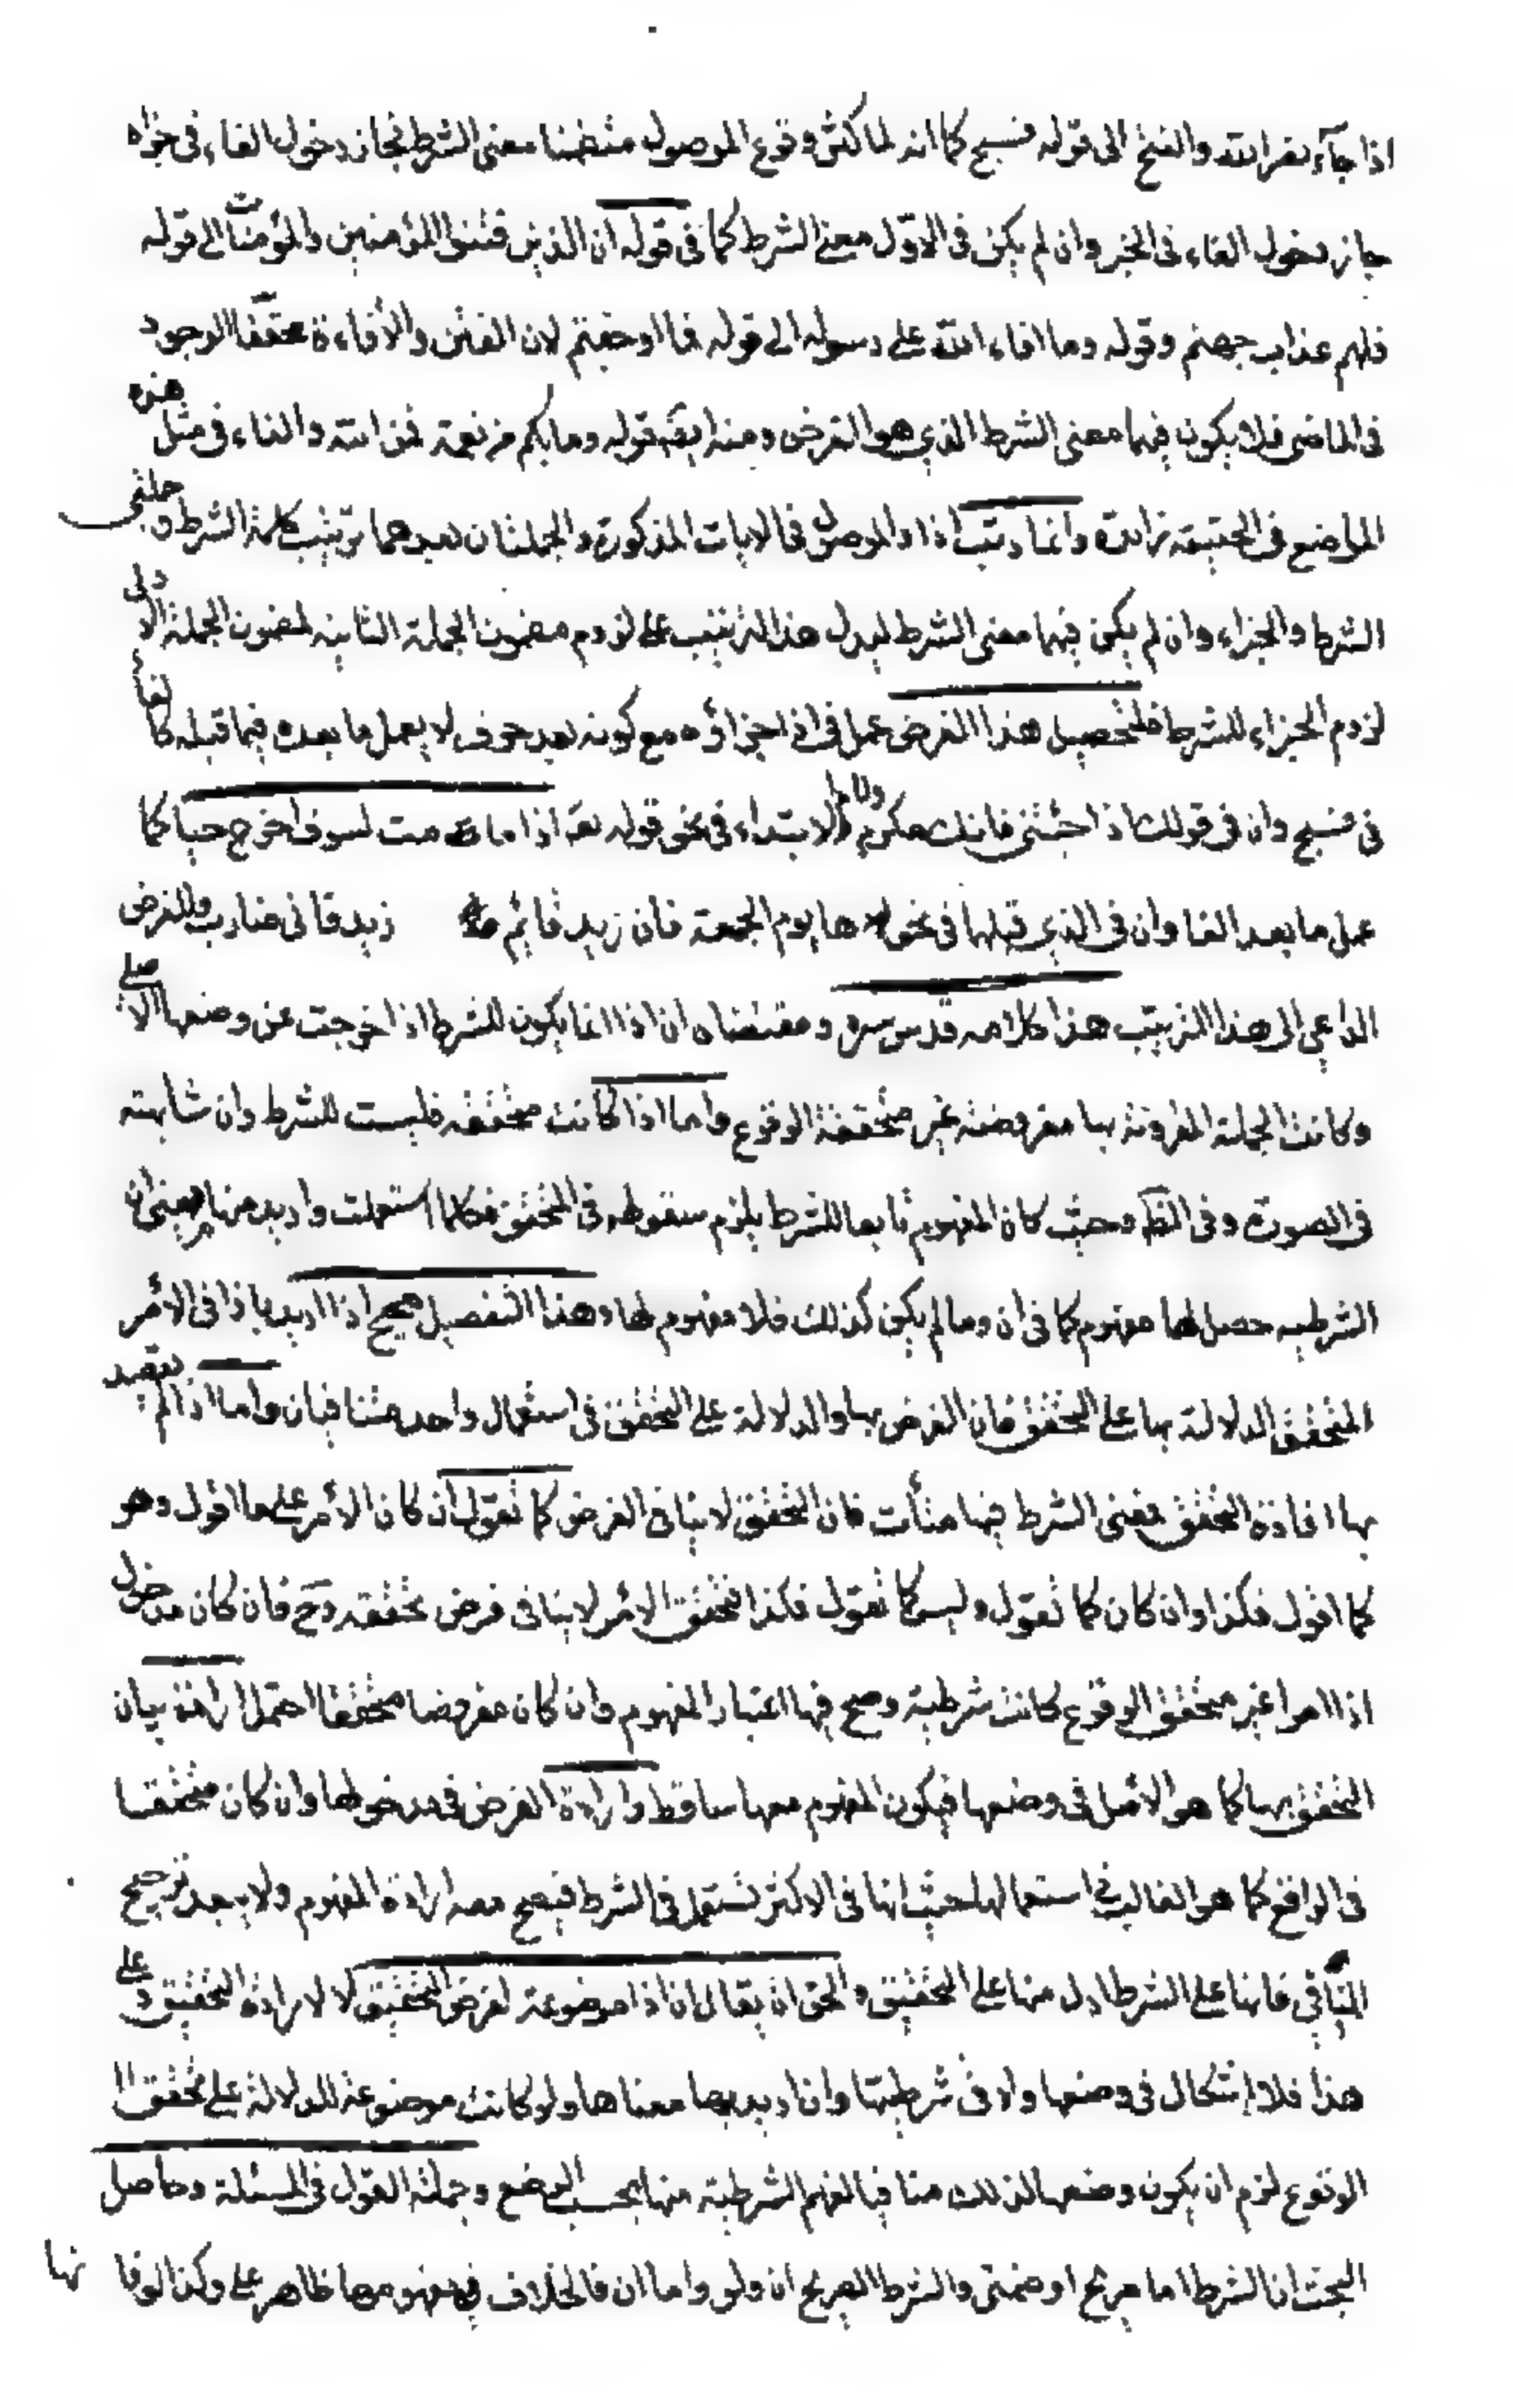 اذا جآء نصر الله والفتح الى قوله فسبح كما انه لما كثر وقوع الموصول متضمنا معنى الشرط فجاز دخول الفاء فى خبره
جاز دخول الفاء فى الخبر وان لم يكن فى الاول معنى الشرط كما فى قوله ان الذين فتنوا المؤمنين والمؤمنات الى قوله
فلهم عذاب جهنم وقوله وما افاء الله على رسوله الى قوله فما اوجفتم لان الفتن والأفاءة محققا الوجود
فى الماضى فلا يكون فيهما معنى الشرط الذى هو الفرض ومنه ايضا قوله وما بكم من نعمة فمن الله والفاء فى مثل هذه
المواضع فى الحقيقة زائدة وانما رتب اذا والموصول فى الايات المذكورة والجملتان بعدهما ترتيب كلمة الشرط وجملتى
الشرط والجزاء وان لم يكن فيهما معنى الشرط ليدل هذا الترتيب على لزوم مضمون الجملة الثانيه لمضمون الجملة الاولى
لزوم الجزاء للشرط فلتحصيل هذا الغرض عمل فى اذا جزاؤه مع كونه بعد حرف لا يعمل ما بعده فيما قبله كالفاء
فى فسبح وان فى قولك اذا جئتنى فانك مكرم ولام الابتداء فى نحو قوله تع اذا ما مت لسوف اخرج حيا كما
عمل ما بعد الفا وان فى الذى قبلها فى نحو اما يوم الجمعة فان زيد قائم زيد فانى ضارب وللغرض
الداعى الى هذا الترتيب هذا كلامه قدس سره ومقتضاه ان اذا انما يكون للشرط اذا خرجت عن وضعها الاصلى
وكانت الجملة المقرونة بها مفروضة غير متحققة الوقوع واما اذا كانت محققه فليست للشرط وان شابهته
فى الصورة وفى الفظ وحيث كان المفهوم تابعا للشرط يلزم سقوطه فى المحقق فكلما استعملت واريد منها معنى ان
الشرطيه حصل لها مفهوم كما فى ان وما لم يكن كذلك فلا مفهوم لها وهذا التفصيل صحيح اذا اريد باذا فى الأمر
المتحقق الدلالة بها على التحقق فان الفرض بها والدلالة على التحقق فى استعمال واحد متنافيان واما اذا لم يقصد
بها افادة التحقق فمعنى الشرط فيها متأت فان التحقق لا ينافى الفرض كما تقول ان كان الأمر على ما اقول وهو
كما اقول فكذا وان كان كما تقول وليس كما تقول فكذا فتحقق الامر لا ينافى فرض تحققه وح فان كان مدخول
اذا امرا غير متحقق الوقوع كانت شرطية وصح فيها اعتبار المفهوم وان كان مفروضا محققا احتمل ارادة بيان
التحقق بها كما هو الاصل فى وضعها فيكون المفهوم معها ساقطا وارادة الفرض فى مدخولها وان كان متحققا
فى الواقع كما هو الغالب فى استعمالها حيث انها فى الاكثر تستعمل فى الشرط فيصح معه ارادة المفهوم ولا يبعد ترجيح
الثانى فانها على الشرط ادل منها على التحقيق والحق ان يقال ان اذا موضوعة لفرض التحقيق لا لارادة التحقيق وعلى
هذا فلا اشكال فى وضعها ولا فى شرطيتها وان اريد بها معناها ولو كانت موضوعة للدلالة على تحقق
الوقوع لزم ان يكون وضعها لذلك منافيا لفهم الشرطية منها بحسب الوضع وجملة القول فى المسئلة وحاصل
البحث ان الشرط اما صريح او ضمنى والشرط الصريح ان ولو واما ان فالخلاف فى مفهومها ظاهر على وكذا لو فانها